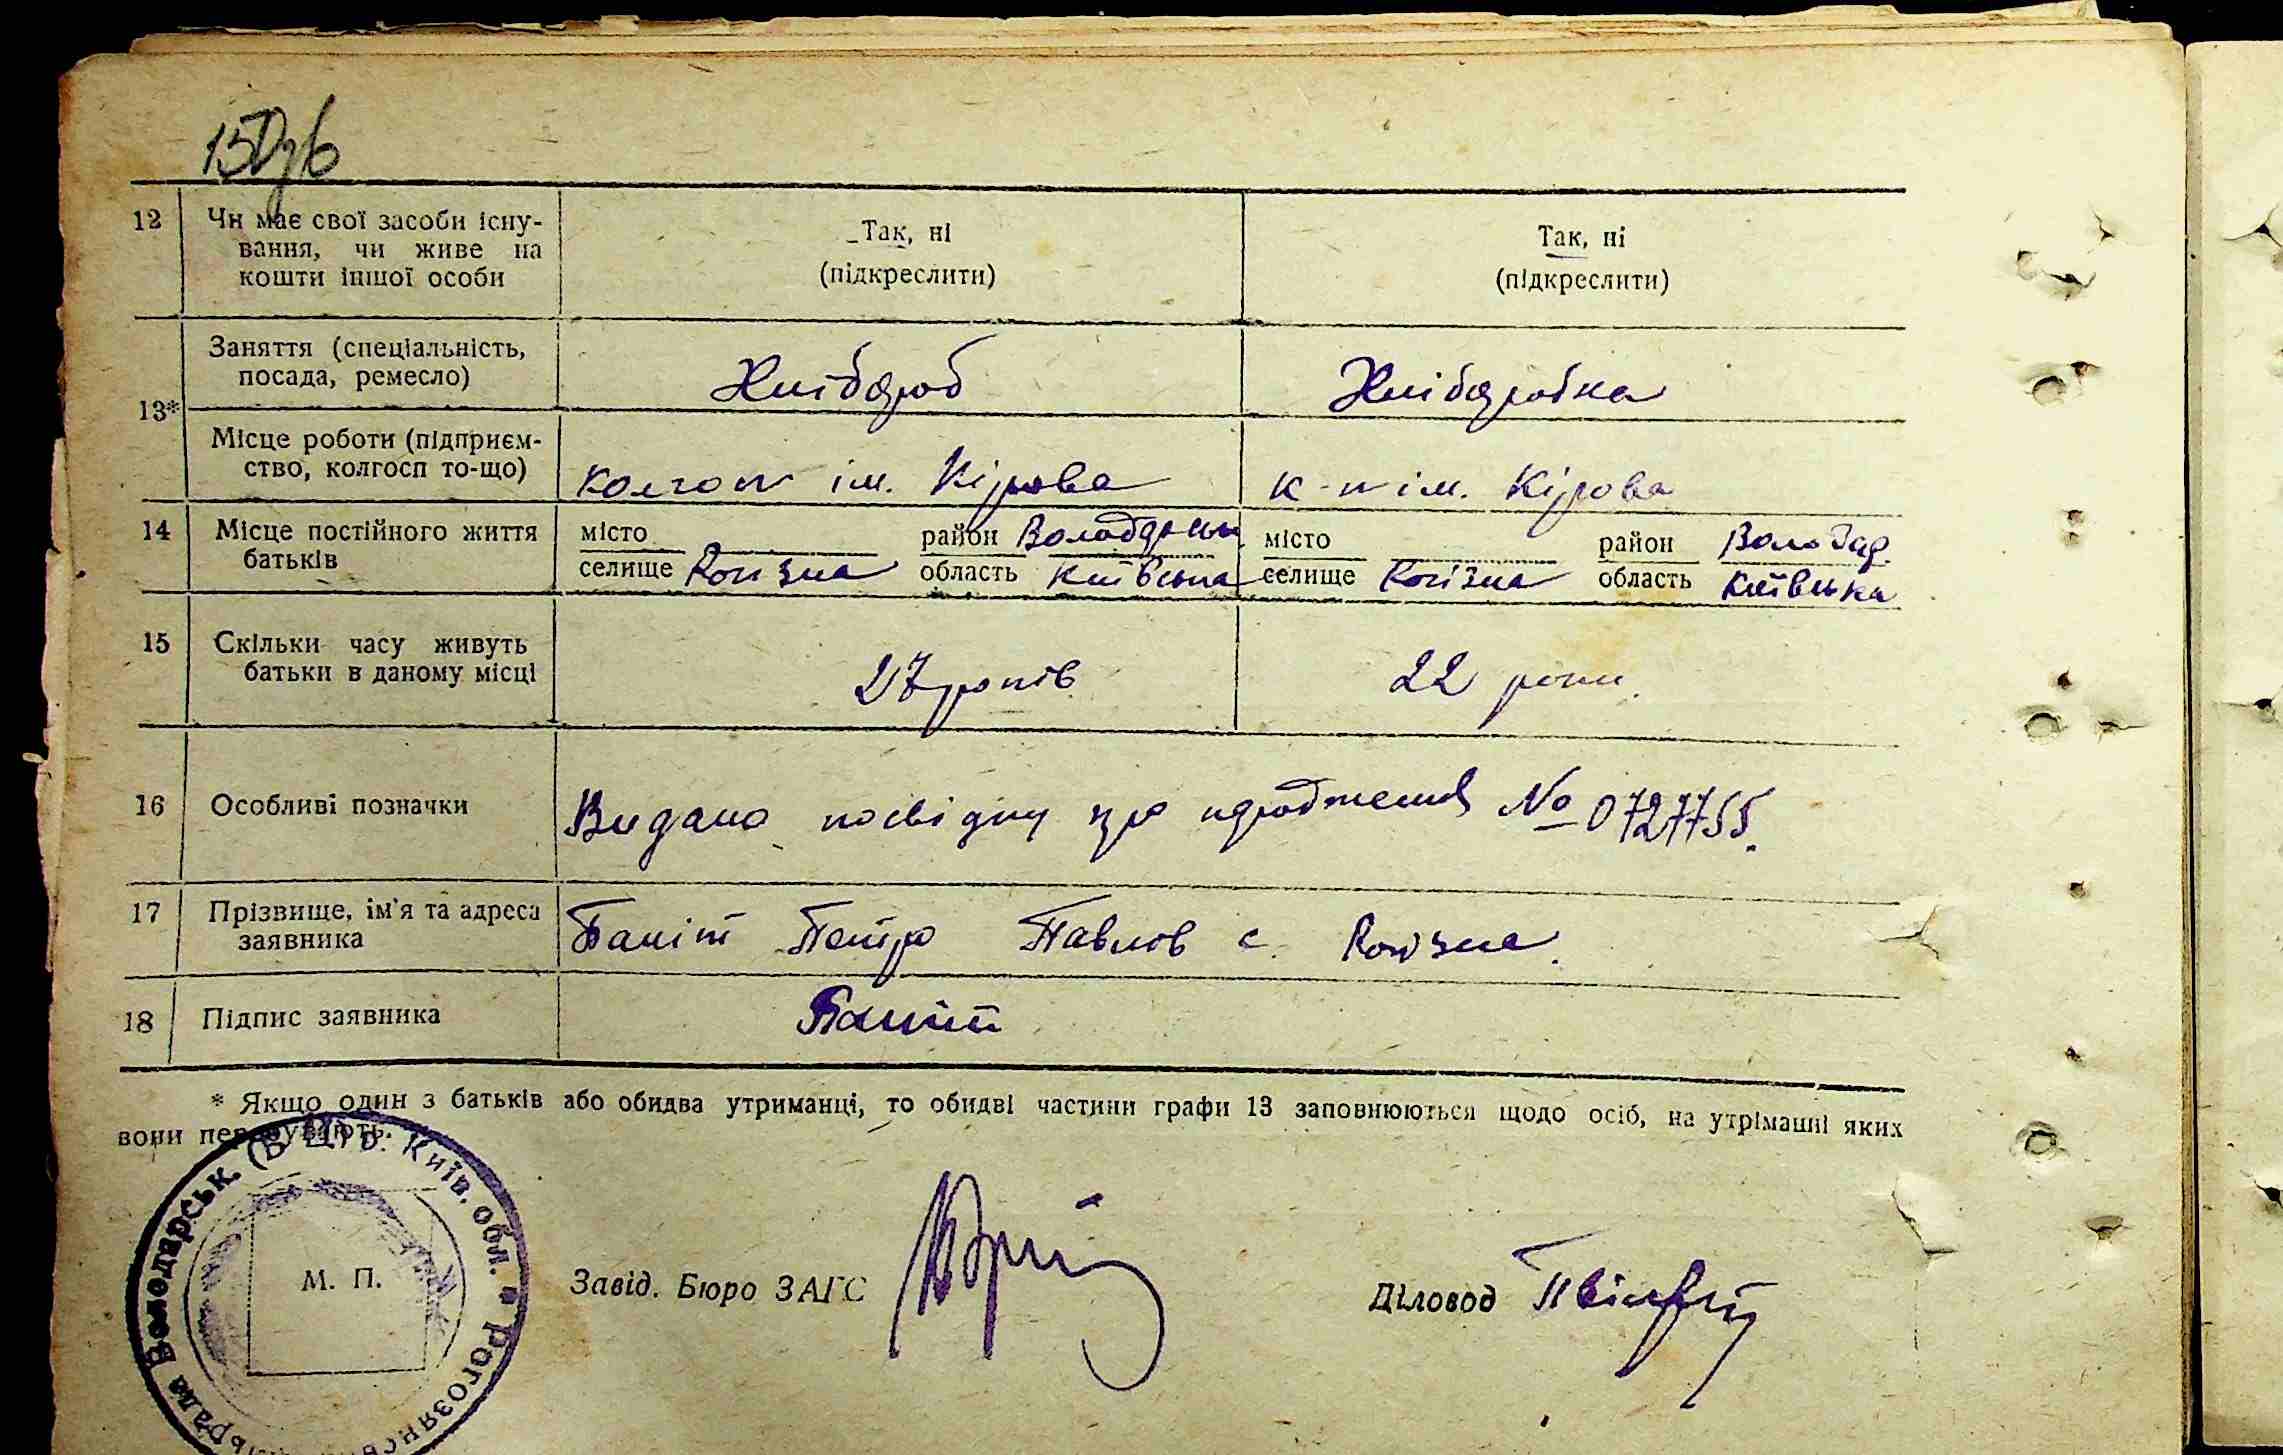 150зв
12 Чи має свої засоби існу-
вання, чи живе на
кошти іншої особи
Так, ні
(підкреслити)
Так, ні
(підкреслити)
13*
Заняття (спеціальність,
посада, ремесло)
Хлібороб
Хліборобка
Місце роботи (підприєм-
ство, колгосп то-що)
колгосп ім. Кірова
к-п ім. Кірова
14 Місце постійного життя
батьків
місто район Володарськ
селище Рогізна область Київська
місто район Володар.
селище Рогізна область Київська
15 Скільки часу живуть
батьки в даному місці
27 років
22 роки
16 Особливі позначки
Видано посвідку про народження № 0727755.
17 Прізвище, ім'я та адреса
заявника
Петро Павлов с. Рогізна.
18 Підпис заявника
* Якщо один з батьків або обидва утриманці, то обидві частини графи 13 заповнюються щодо осіб, на утріманні яких
вони перебувають.
Володарськ. Київ. обл.
М. П.
Завід. Бюро ЗАГС
Діловод